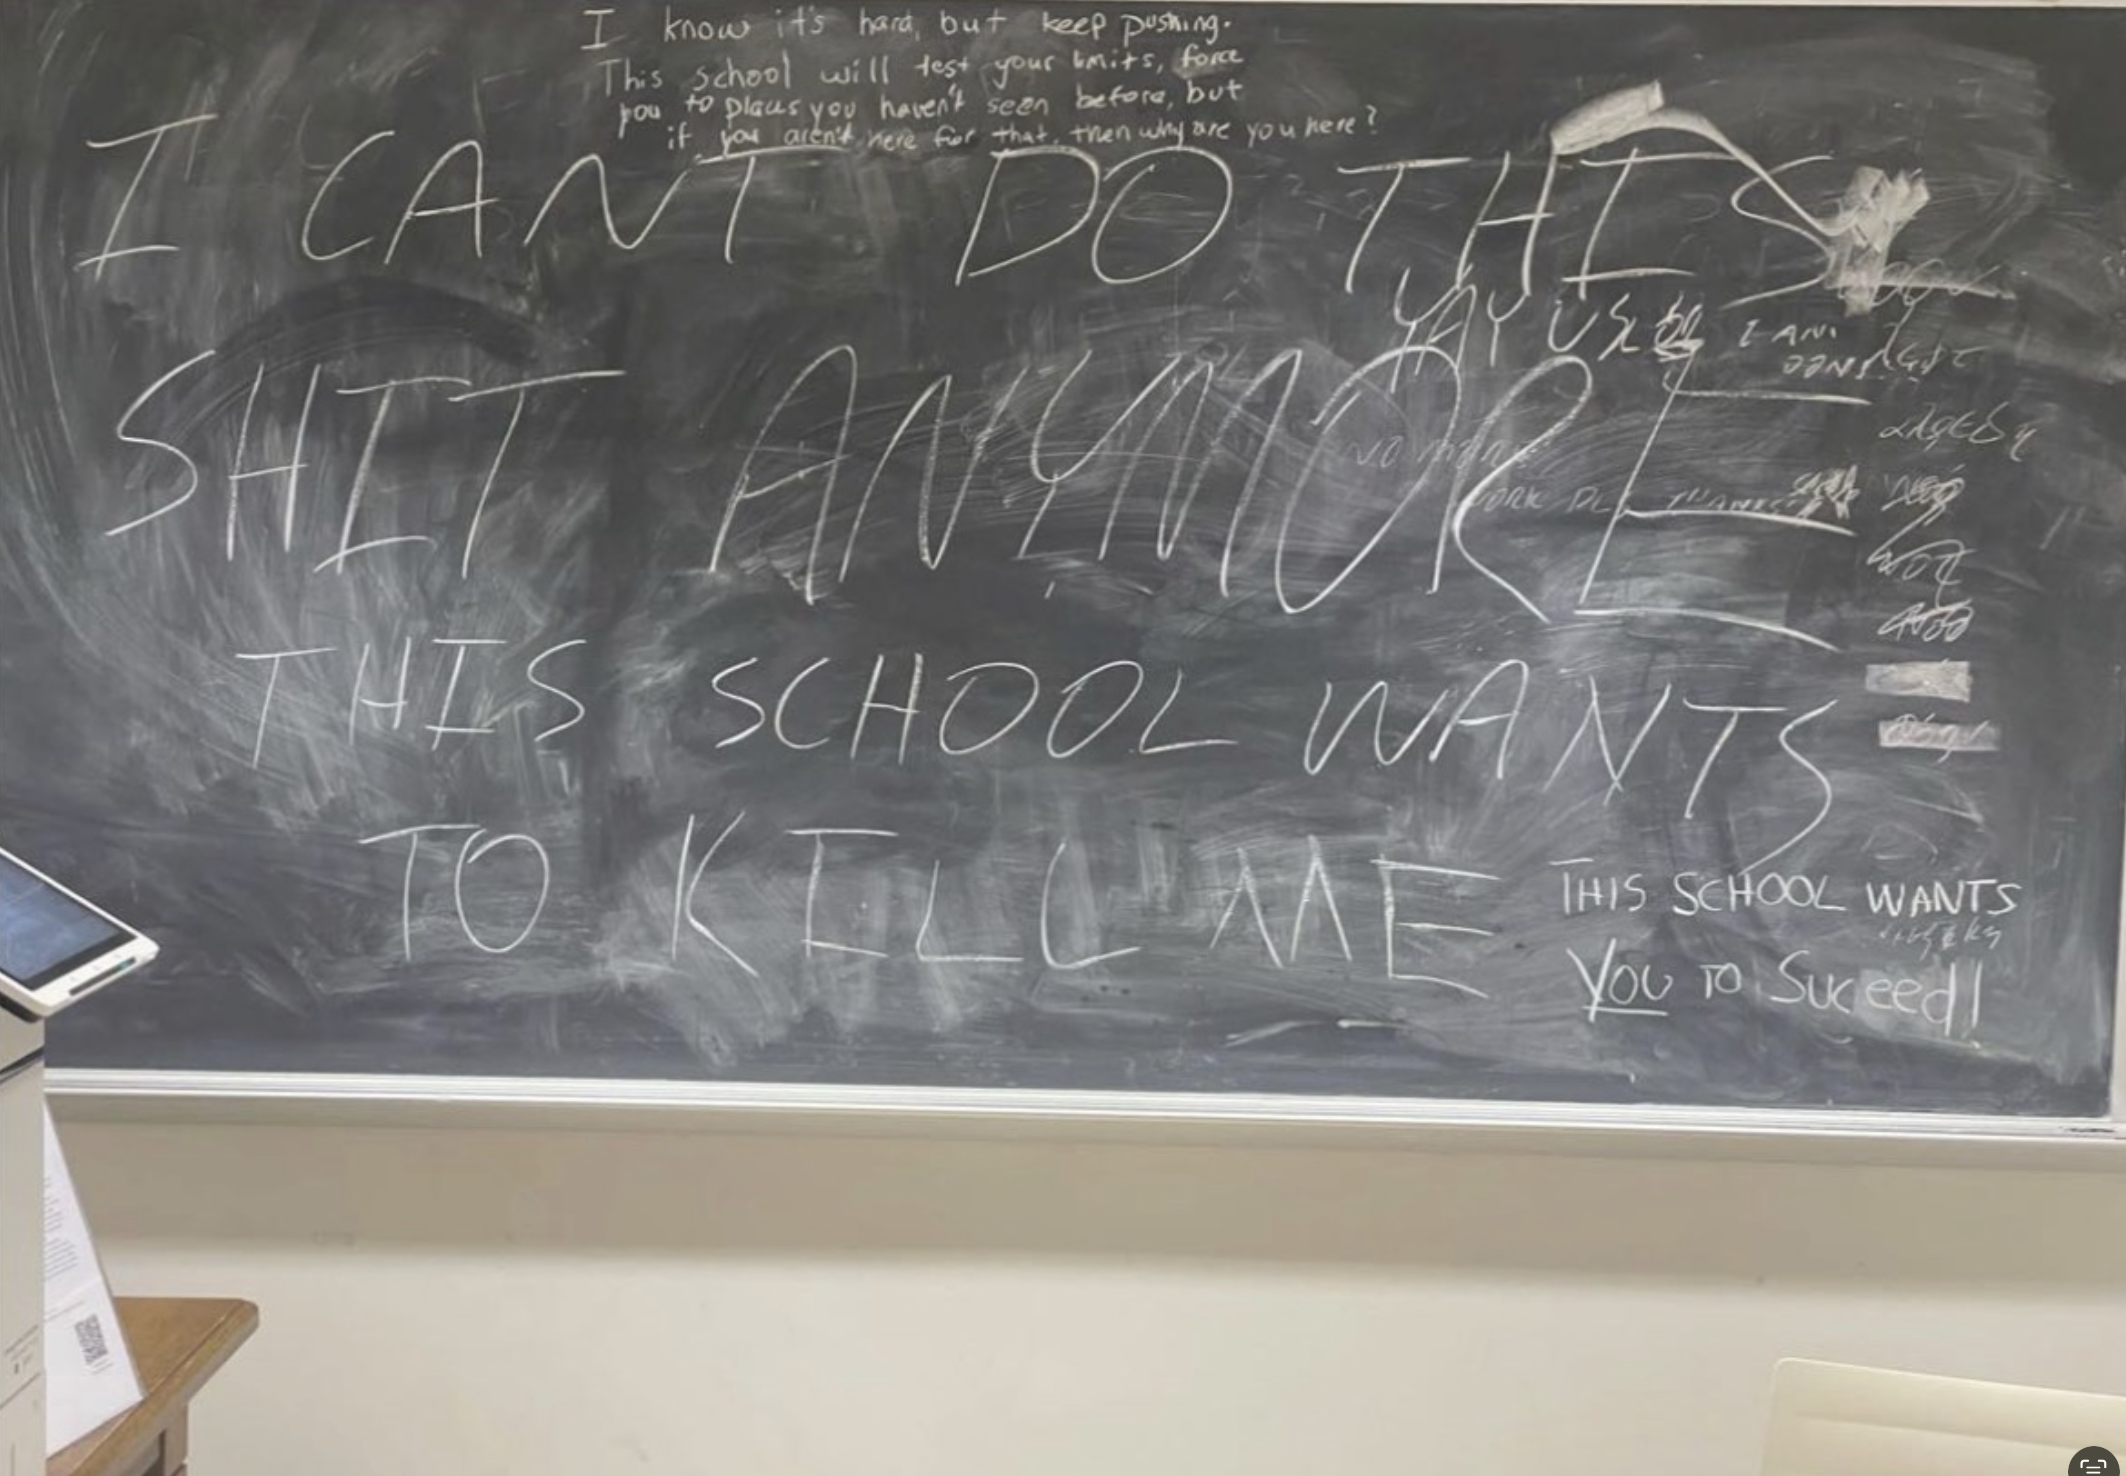 I know it's hard, but keep pushing.
This school will test your limits, force
you to places you haven't seen before, but
if you aren't here for that, then why are you here?
I CANT DO THIS
YAY
I AM
SHIT ANYMORE
NO MORE
WORK THANKS
THIS SCHOOL WANTS
TO KILL ME
THIS SCHOOL WANTS
YOU TO Suceed!